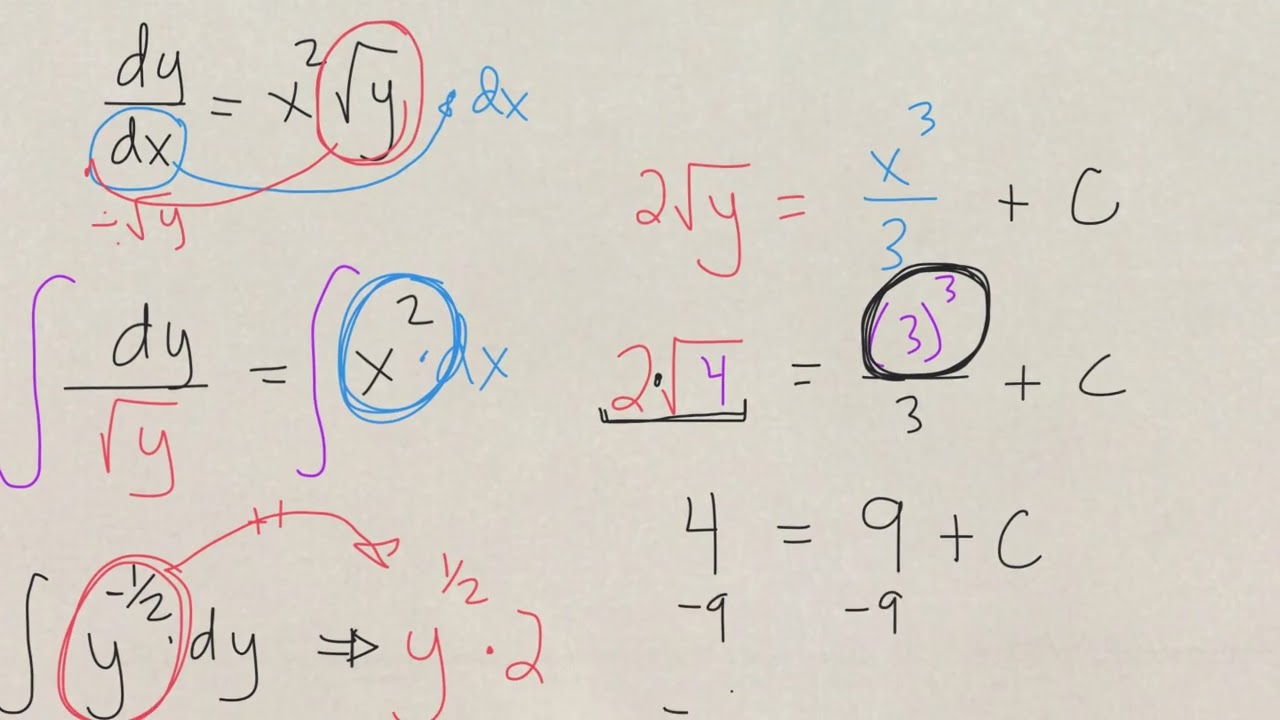 dy/dx = x²√y dx
÷√y
∫ dy/√y = ∫ x² · dx
∫ y^(-1/2) · dy ⇒ y^(1/2) · 2
+1
2√y = x³/3 + C
2 · √4 = (3)³/3 + C
4 = 9 + C
-9 -9
-